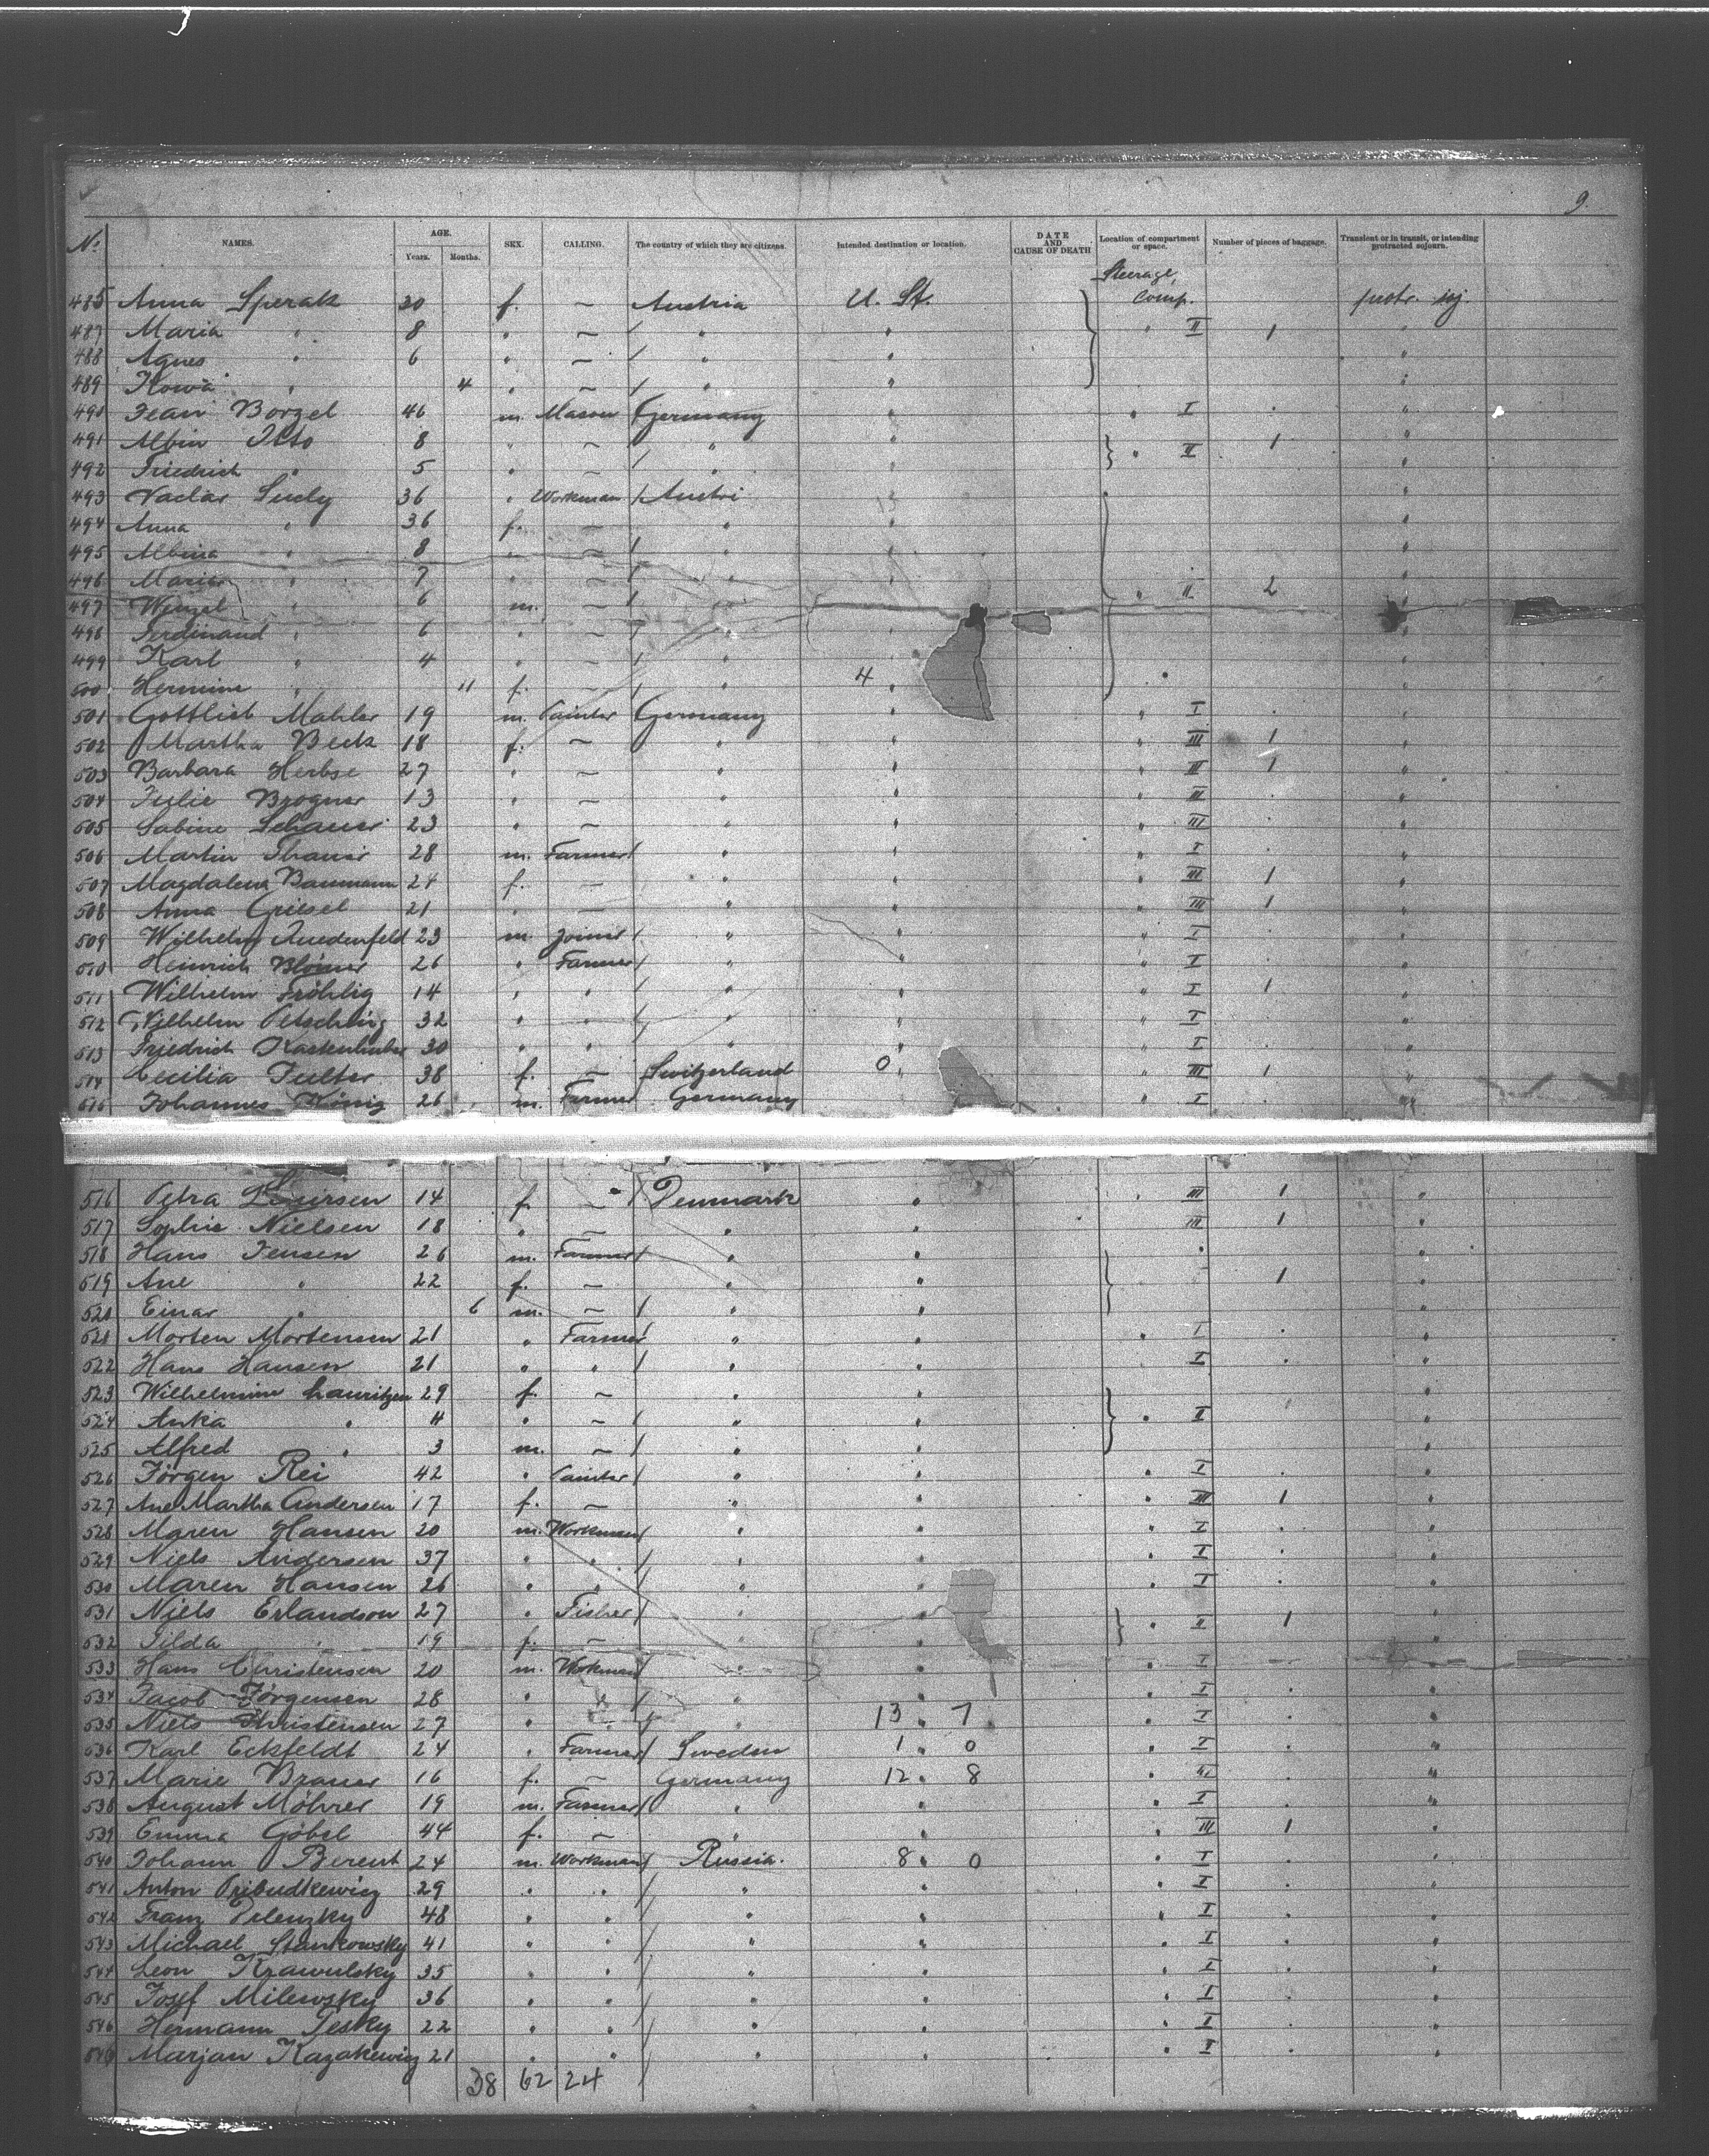 9.
No. NAMES. AGE. Years. Months. SEX. CALLING. The country of which they are citizens. Intended destination or location. DATE AND CAUSE OF DEATH Location of compartment or space. Number of pieces of baggage. Transient or in transit, or intending protracted sojourn.
Steerage
485 Anna Sperak 30 f. ~ Austria U. St. Comp. protr. soj.
487 Maria " 8 " ~ " " " II 1 "
488 Agnes " 6 " ~ / " " "
489 " 4 " ~ / " " "
490 Jean Borzel 46 m. Mason Germany " " I . "
491 Albin Otto 8 " ~ " " 1 "
492 Friedrich " 5 " ~ / " " II "
493 Vaclav Sudy 36 " Workman / Austri "
494 Anna " 36 f. ~ " " "
495 Albina " 8 " ~ / " " "
496 Maria " 7 " ~ / " "
497 Wenzel " 6 m. ~ / " " II 2 "
498 Ferdinand " 6 " ~ / " " "
499 Karl " 4 " ~ / " "
500 Hermine " 11 f. ~ / " 4 " "
501 Gottlieb Mahler 19 m. Painter Germany " " I . "
502 Martha Beck 18 f. ~ " " " III 1 "
503 Barbara Herbse 27 " ~ " " " III 1 "
504 Julie Brogner 13 " ~ " " " III . "
505 Sabine Schauer 23 " ~ " " " III . "
506 Martin 28 m. Farmer / " " " I . "
507 Magdalena Baumann 24 f. ~ " " " III 1 "
508 Anna Griesel 21 " ~ " " " III 1 "
509 Wilhelm 23 m. Joiner / " " " I . "
510 Heinrich Blömer 26 " Farmer / " " " I . "
511 Wilhelm Fröhlig 14 " " / " " " I 1 "
512 Wilhelm Petschling 32 " " / " " " I . "
513 Friedrich Kastenhuber 30 " " / " " " I . "
514 Cecilia 38 f. ~ Switzerland 0 " " III 1 "
515 Johannes König 26 m. Farmer Germany " I . "
516 Petra 14 f. ~ / Denmark " " III 1 "
517 Sophie Nielsen 18 " ~ " " III 1 "
518 Hans Jensen 26 m. Farmer / " " " "
519 Ane " 22 f. ~ " " 1 "
520 Einar " 6 m. ~ / " " "
521 Morten Mortensen 21 " Farmer / " " " I . "
522 Hans Hansen 21 " " / " " I . "
523 Wilhelmine Lauritzen 29 f. ~ " " "
524 Anka " 4 " ~ / " " " II "
525 Alfred " 3 m. ~ / " " "
526 Jörgen Rei 42 " Painter / " " " I . "
527 Ane Martha Andersen 17 f. ~ " " " III 1 "
528 Maren Hansen 20 m. Workman / " " " I . "
529 Niels Andersen 37 " " / " " " I . "
530 Maren Hansen 26 " " / " " " I . "
531 Niels Erlandson 27 " Fisher / " " " II 1 "
532 Tilda " 19 f. ~ " " "
533 Hans Christensen 20 m. Workman / " " " I . "
534 Jacob Jörgensen 28 " " / " " " I . "
535 Niels Christensen 27 " " / " 13 " 7 " I . "
536 Karl Eckfeldt 24 " Farmer / Sweden 1 " 0 " I . "
537 Marie Braner 16 f. ~ Germany 12 " 8 " III . "
538 August Möhrer 19 m. Farmer / " " " I . "
539 Emma Göbel 44 f. ~ " " " III 1 "
540 Johann Berent 24 m. Workman / Russia. 8 " 0 " I . "
541 Anton Pribudkewicz 29 " " / " " " I . "
542 Franz Pelenzky 48 " " / " " " I . "
543 Michael Stankowsky 41 " " / " " " I . "
544 Leon Krawulsky 35 " " / " " " I . "
545 Josef Milewsky 36 " " / " " " I . "
546 Hermann Pesky 22 " " / " " " I . "
Marjan Kazakewicz 21 " " / " " " I . "
38 62 24